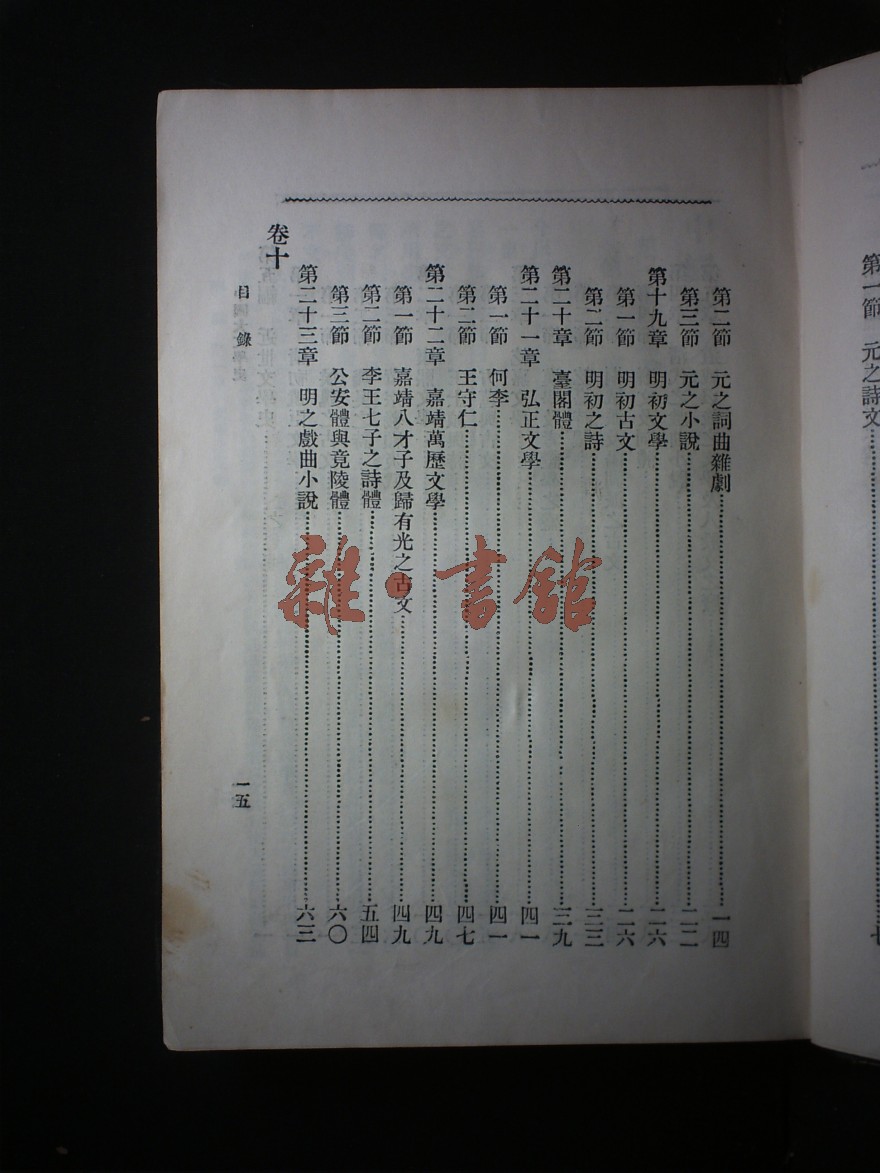 第一節　元之詩文……七
第二節　元之詞曲雜劇……一四
第三節　元之小說……二二
第十九章　明初文學……二六
第一節　明初古文……二六
第二節　明初之詩……三三
第二十章　臺閣體……三九
第二十一章　弘正文學……四一
第一節　何李……四一
第二節　王守仁……四七
第二十二章　嘉靖萬歷文學……四九
第一節　嘉靖八才子及歸有光之古文……四九
第二節　李王七子之詩體……五四
第三節　公安體與竟陵體……六〇
第二十三章　明之戲曲小說……六三
卷十
目錄
一五
雜·書館